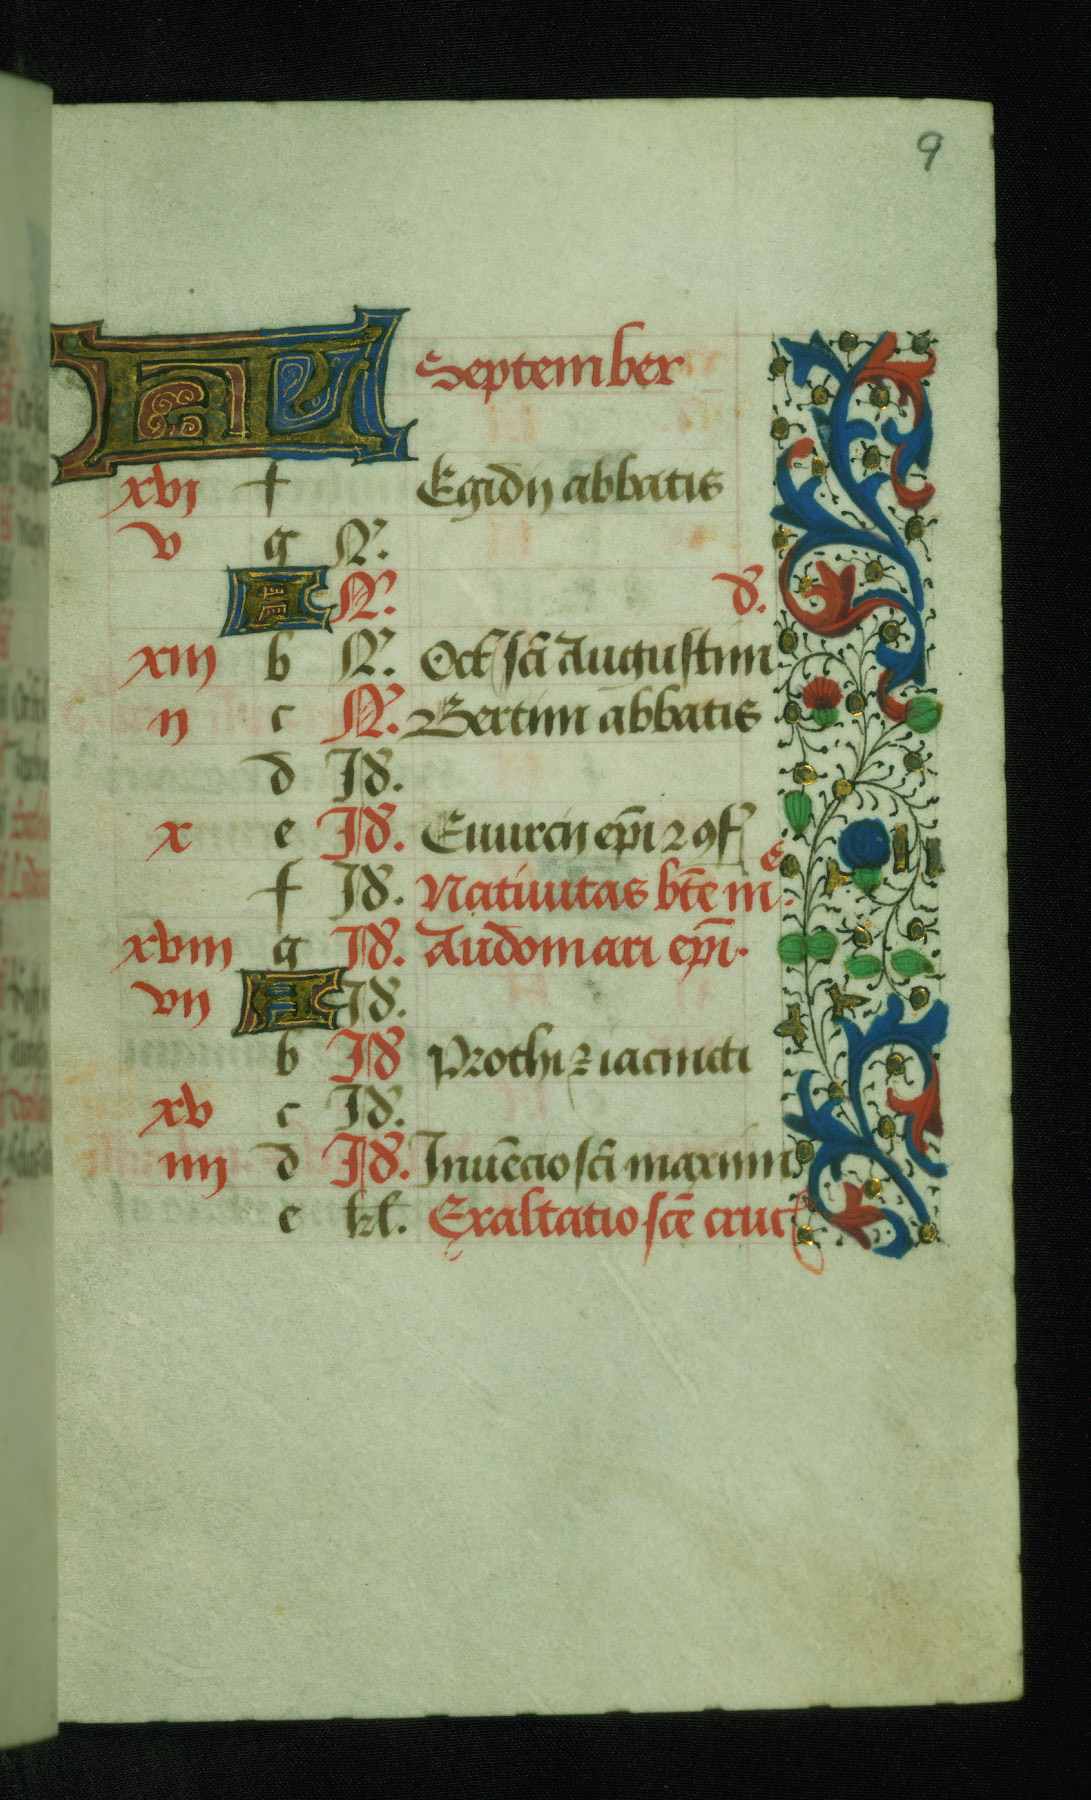 9
KL September
xvj f Egidij abbatis
v g N.
A N. d.
xiij b N. Oct sci Augustini
ij c N. Bertini abbatis
d Id.
x e Id. Euurcij epi 2 9f
f Id. Natiuitas bte me.
xviij g Id. Audomari epi.
vij A Id.
b Id Prothi 2 iacincti
xv c Id.
iiij d Id. Inuecio sci maximi
e kl. Exaltatio sce cruc